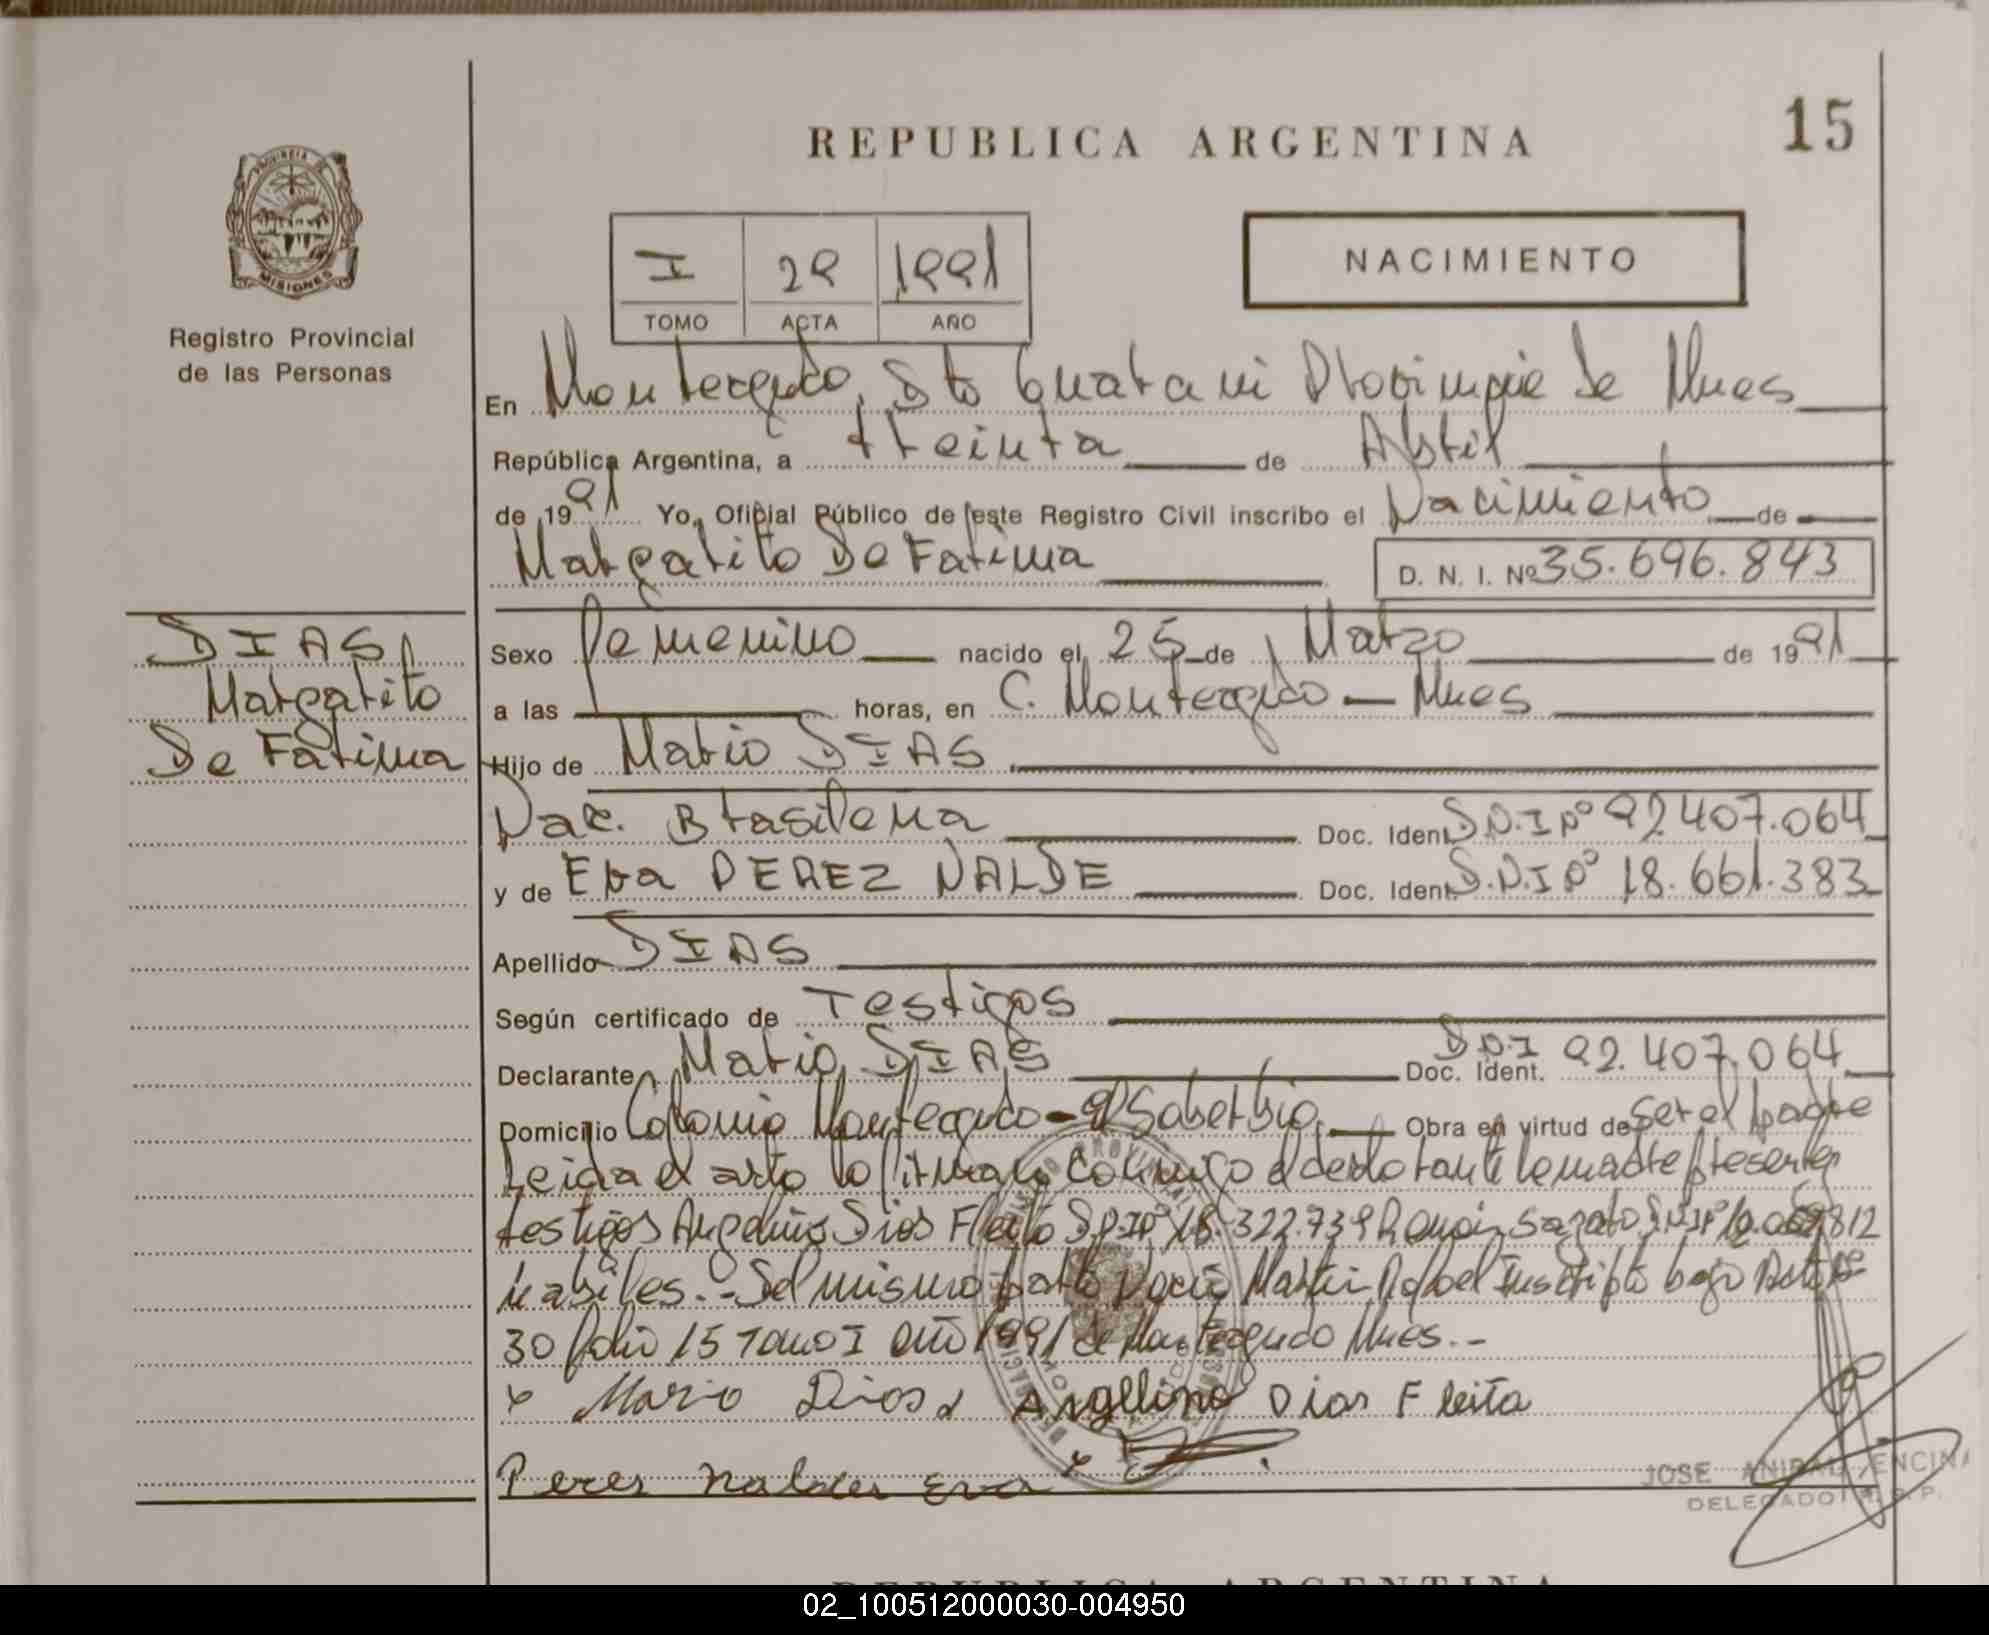 REPUBLICA ARGENTINA
15
PROVINCIA DE
MISIONES
Registro Provincial
de las Personas
I 29 1991
TOMO ACTA AÑO
NACIMIENTO
En Montegudo, Dto Guarani Provincia de Mnes
República Argentina, a treinta de Abril
de 1991 Yo, Oficial Público de este Registro Civil inscribo el Nacimiento de
Margarita De Fatima D. N. I. Nº 35.696.843
DIAS
Margarita
De Fatima
Sexo femenino nacido el 25 de Marzo de 1991
a las horas, en C. Monteagudo - Mnes
Hijo de Mario DIAS
Nac. Brasilena Doc. Ident. D.N.I Nº 92.407.064
y de Eva PEREZ NALDE Doc. Ident. D.N.I Nº 18.661.383
Apellido DIAS
Según certificado de Testigos
Declarante Mario DIAS Doc. Ident. D.N.I 92.407.064
Domicilio Colonia Monteagudo - El Soberbio Obra en virtud de ser el padre
Leida el acta la firman conmigo el declarante la madre presentes
testigos Angelino Dias Fleita D.N.I Nº 18.322.739 Ramon D.N.I Nº
habiles.- Del mismo parto Nació Martin Rafael Inscripto bajo Acta Nº
30 folio 15 Tomo I año 1991 de Monteagudo Mnes.-
x Mario Dias x Angellino Dias Fleita
Peres Naldes Eva x
JOSE ANIBAL ENCINA
DELEGADO R. P. P.
REPUBLICA ARGENTINA
02_100512000030-004950